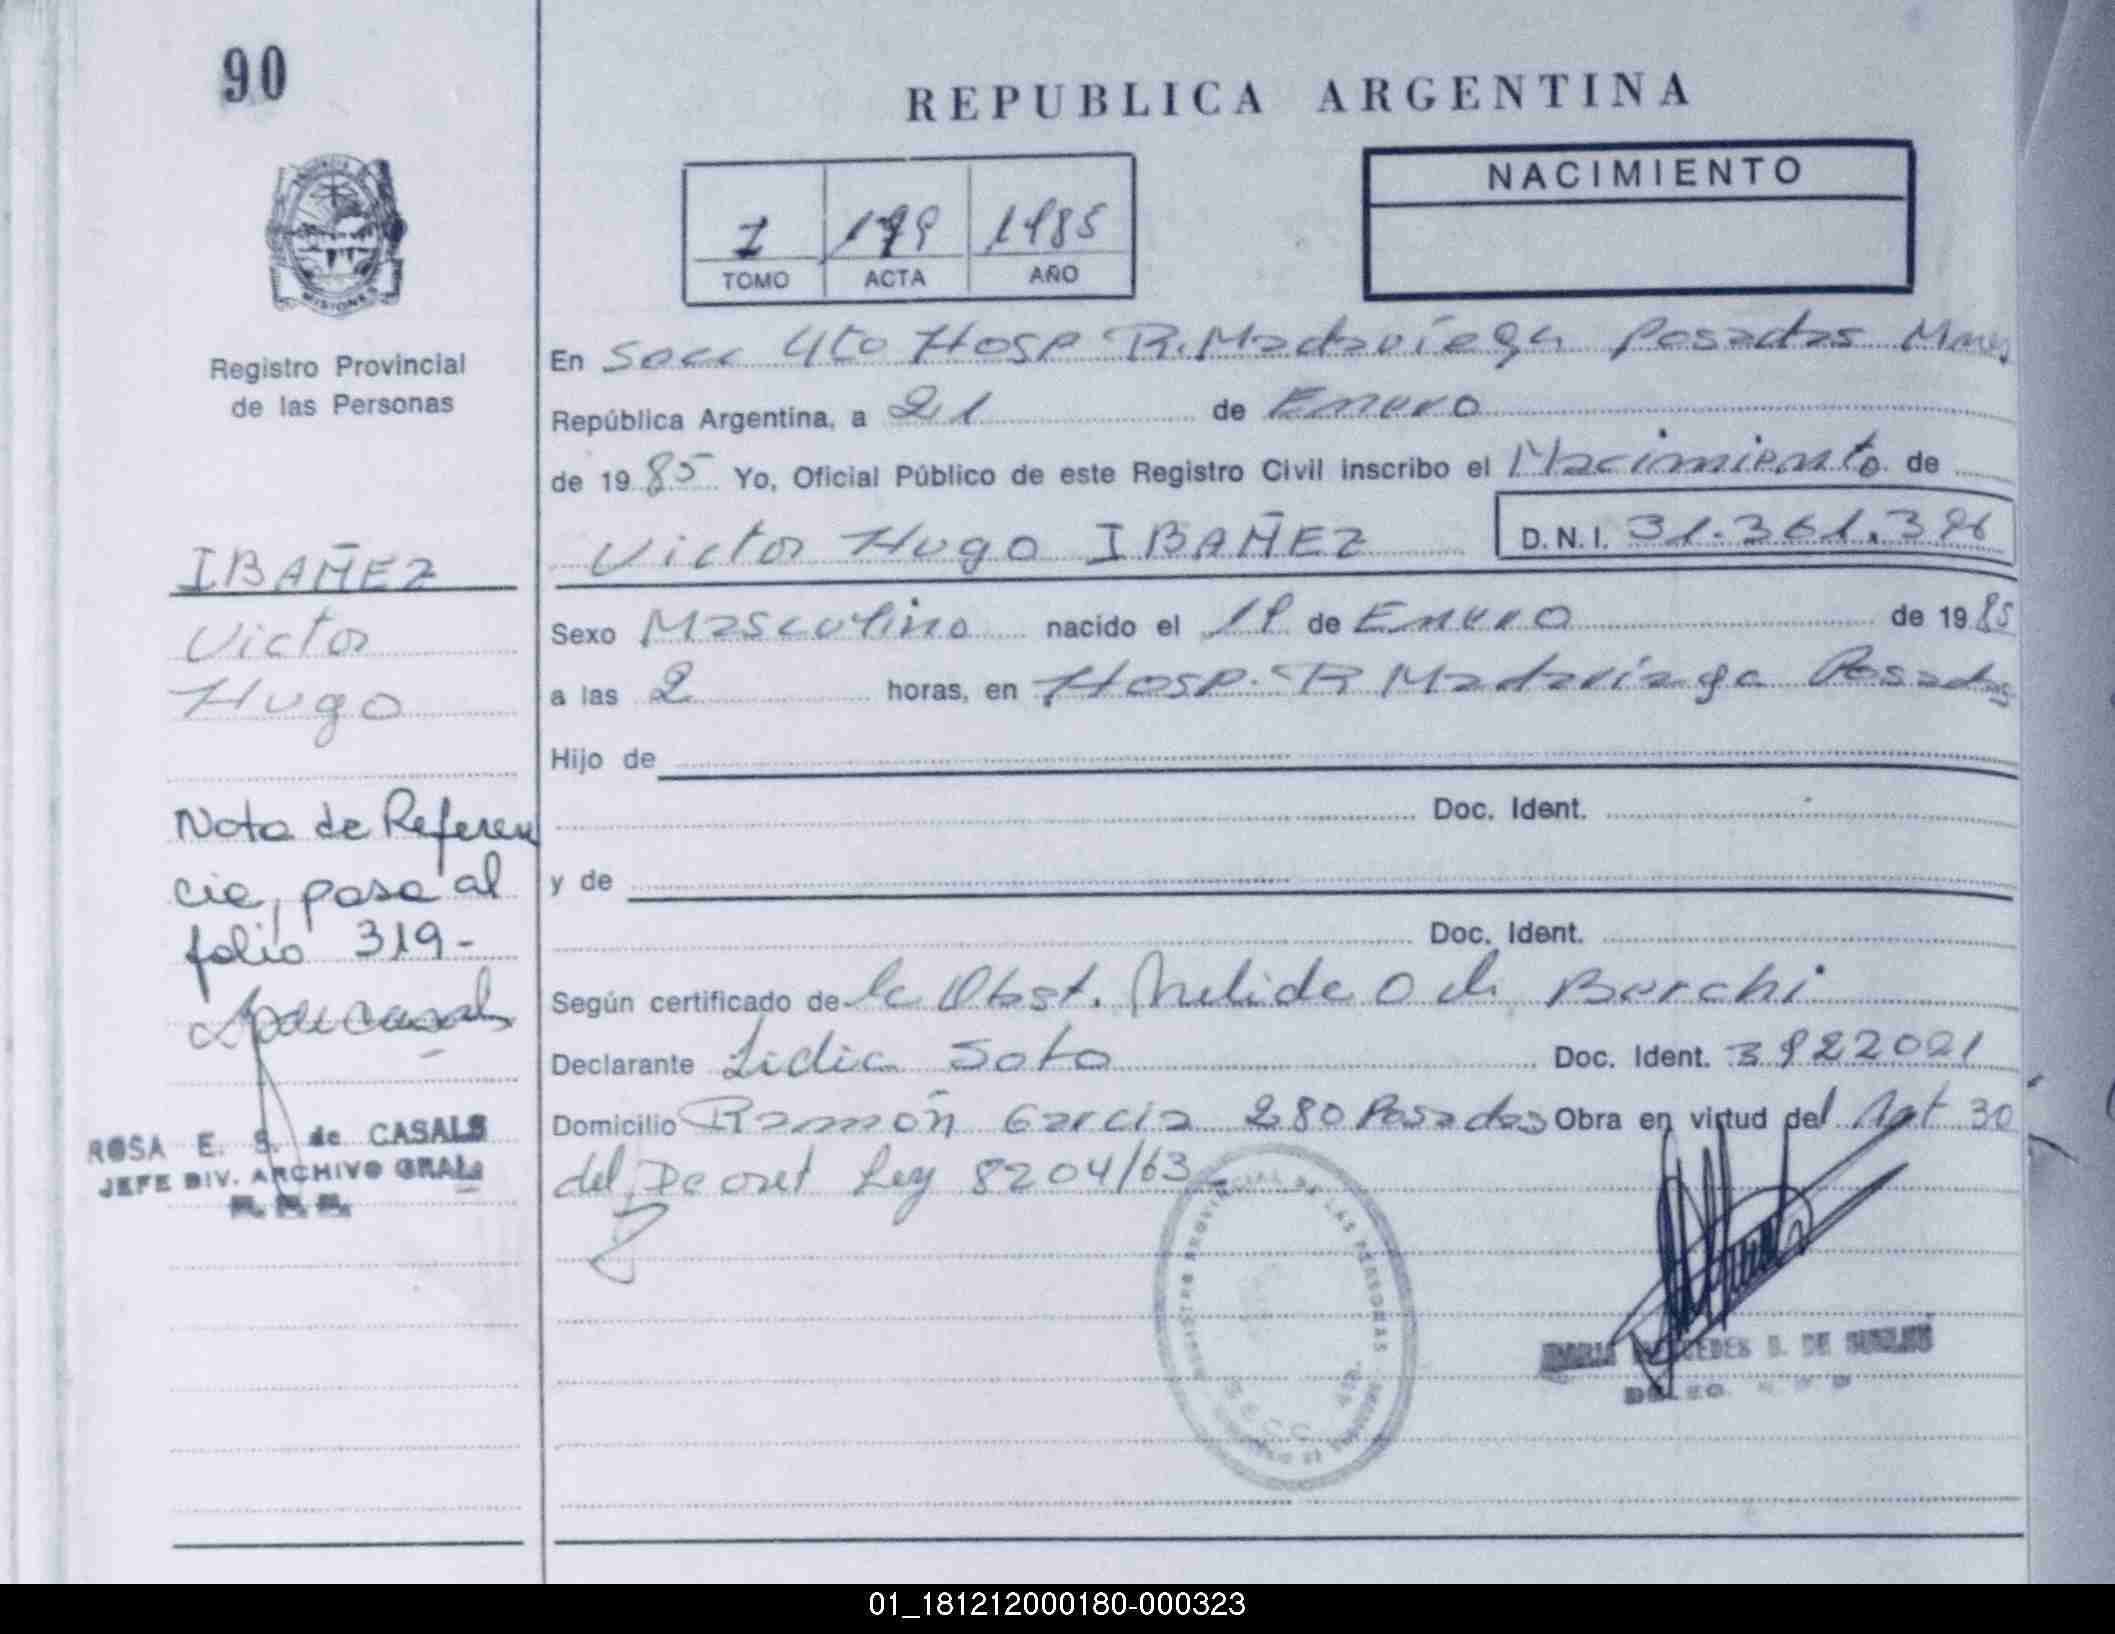 90
REPUBLICA ARGENTINA
NACIMIENTO
1 199 1985
TOMO ACTA AÑO
PROVINCIA
MISIONES
Registro Provincial
de las Personas
En Secc 4to Hosp R. Madariaga Posadas Mnes
República Argentina, a 21 de Enero
de 1985 Yo, Oficial Público de este Registro Civil inscribo el Nacimiento de
Victor Hugo IBAÑEZ D.N.I. 31.361.396
Sexo Masculino nacido el 19 de Enero de 1985
a las 2 horas, en Hosp. R Madariaga Posadas
Hijo de
Doc. Ident.
y de
Doc. Ident.
Según certificado de la Obst. Nelida O de Barchi
Declarante Lidia Soto Doc. Ident. 3922021
Domicilio Ramón Garcia 280 Posadas Obra en virtud del Art 30
del Decret Ley 8204/63
IBAÑEZ
Victor
Hugo
Nota de Referen
cia, pasa al
folio 319-
ROSA E. S. de CASALS
JEFE DIV. ARCHIVO GRAL.
PROVINCIAL DE LAS PERSONAS
SECC
MARIA MERCEDES D. DE
01_181212000180-000323